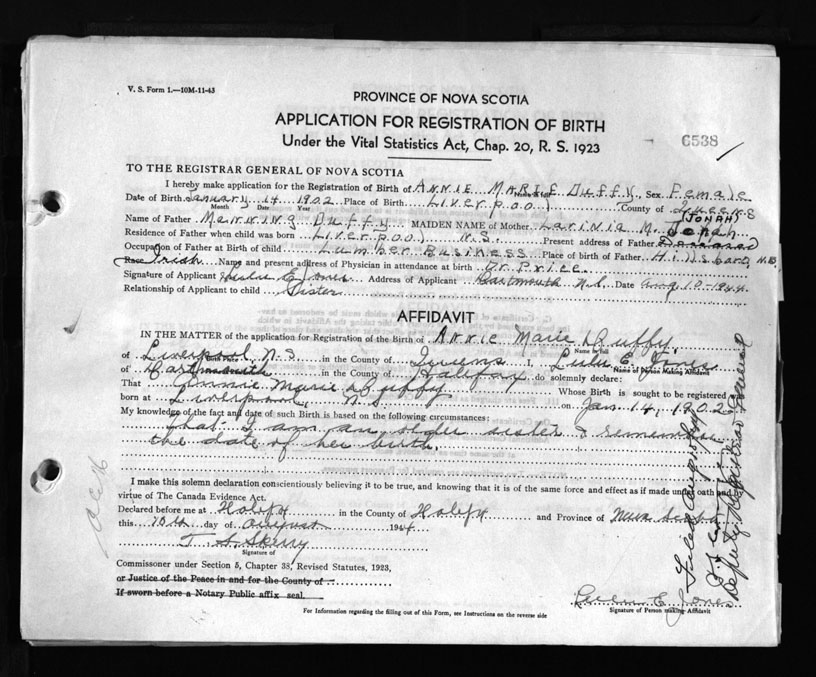 V. S. Form 1.—10M-11-43
PROVINCE OF NOVA SCOTIA
APPLICATION FOR REGISTRATION OF BIRTH
Under the Vital Statistics Act, Chap. 20, R. S. 1923
6538
TO THE REGISTRAR GENERAL OF NOVA SCOTIA
I hereby make application for the Registration of Birth of ANNIE MARIE DUFFY, Sex Female
Date of Birth January 14 1902 Place of Birth Liverpool County of Queens
Month Date Year
JONAH
Name of Father Manning Duffy MAIDEN NAME of Mother Larinia M. Jonah
Residence of Father when child was born Liverpool N.S. Present address of Father Deceased
Occupation of Father at Birth of child Lumber Business Place of Birth of Father Hillsboro, N.B.
Race Irish Name and present address of Physician in attendance at birth Dr. Price
Signature of Applicant Lulu E Jones Address of Applicant Dartmouth N.S. Date Aug 10-1944
Relationship of Applicant to child Sister
AFFIDAVIT
IN THE MATTER of the application for Registration of the Birth of Annie Marie Duffy
Name in full
of Liverpool, N.S. in the County of Queens I, Lulu E. Jones
Birth Place Name of Person Making Affidavit
of Dartmouth in the County of Halifax do solemnly declare:
That Annie Marie Duffy Whose Birth is sought to be registered
born at Liverpool, N.S. on Jan. 14, 1902
My knowledge of the fact and date of such Birth is based on the following circumstances:
that I am an older sister & remember
the date of her birth.
I make this solemn declaration conscientiously believing it to be true, and knowing that it is of the same force and effect as if made under oath and by
virtue of The Canada Evidence Act.
Declared before me at Halifx in the County of Halifx and Province of Nova Scotia
this 10th day of August 1944
T. S. Skerry
Signature of
Commissioner under Section 5, Chapter 38, Revised Statutes, 1923,
or Justice of the Peace in and for the County of
If sworn before a Notary Public affix seal.
Lulu E Jones
Signature of Person making Affidavit
For Information regarding the filling out of this Form, see Instructions on the reverse side
Deputy Registrar General